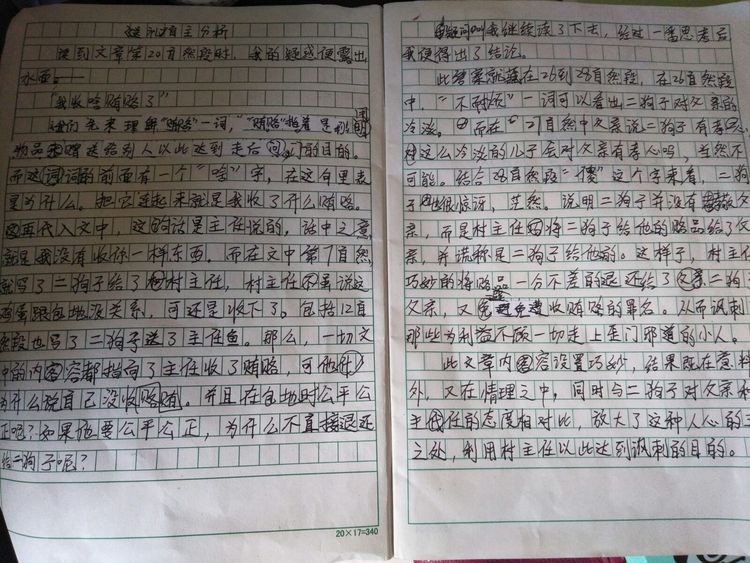 自主分析
读到文章第20自然段时，我的疑惑便露出
水面。——
“我收啥贿赂了”
我们先来理解“贿赂”一词，“贿赂”指着是利用
物品来赠送给别人以此达到走后门的目的。
而这词的前面有一个“啥”字，在这句里表
是为什么。把它连起来就是我收了什么贿赂。
再代入文中，这句话是主任说的，话中之意
就是我没有收你一样东西。而在文中第7自然
就写了二狗子给了村主任，村主任虽说这
鸡蛋跟包地没关系，可还是收下了。包括12自
然段也写了二狗子送了主任鱼。那么，一切文
中的内容都指向了主任收了贿赂，可他
为什么说自己没收贿赂。并且在包地时公平公
正呢？如果他要公平公正，为什么不直接退还
给二狗子呢？
20×17=340
我继续读了下去，经过一番思考后
我便得出了结论。
此答案就藏在26到28自然段，在26自然段
中，“不耐烦”一词可以看出二狗子对父亲的
冷淡。而在27自然中父亲说二狗子有孝
这么冷淡的儿子会对父亲有孝心吗，当然不
可能。结合28自然段“傻”这个字来看，二狗
子很惊讶，茫然。说明二狗子并没有孝敬父
亲，而是村主任将二狗子给他的赂品给了父
亲，并谎称是二狗子给他的。这样子，村主任
巧妙的将赂品一分不差的退还给了二狗子
父亲，又避免遭收贿赂的罪名。从而讽刺
那些为利益不顾一切走上歪门邪道的小人。
此文章内容设置巧妙，结果既在意料
外，又在情理之中，同时与二狗子对父亲和
主任的态度相对比，放大了这种人心的
之处，利用村主任以此达到讽刺的目的。